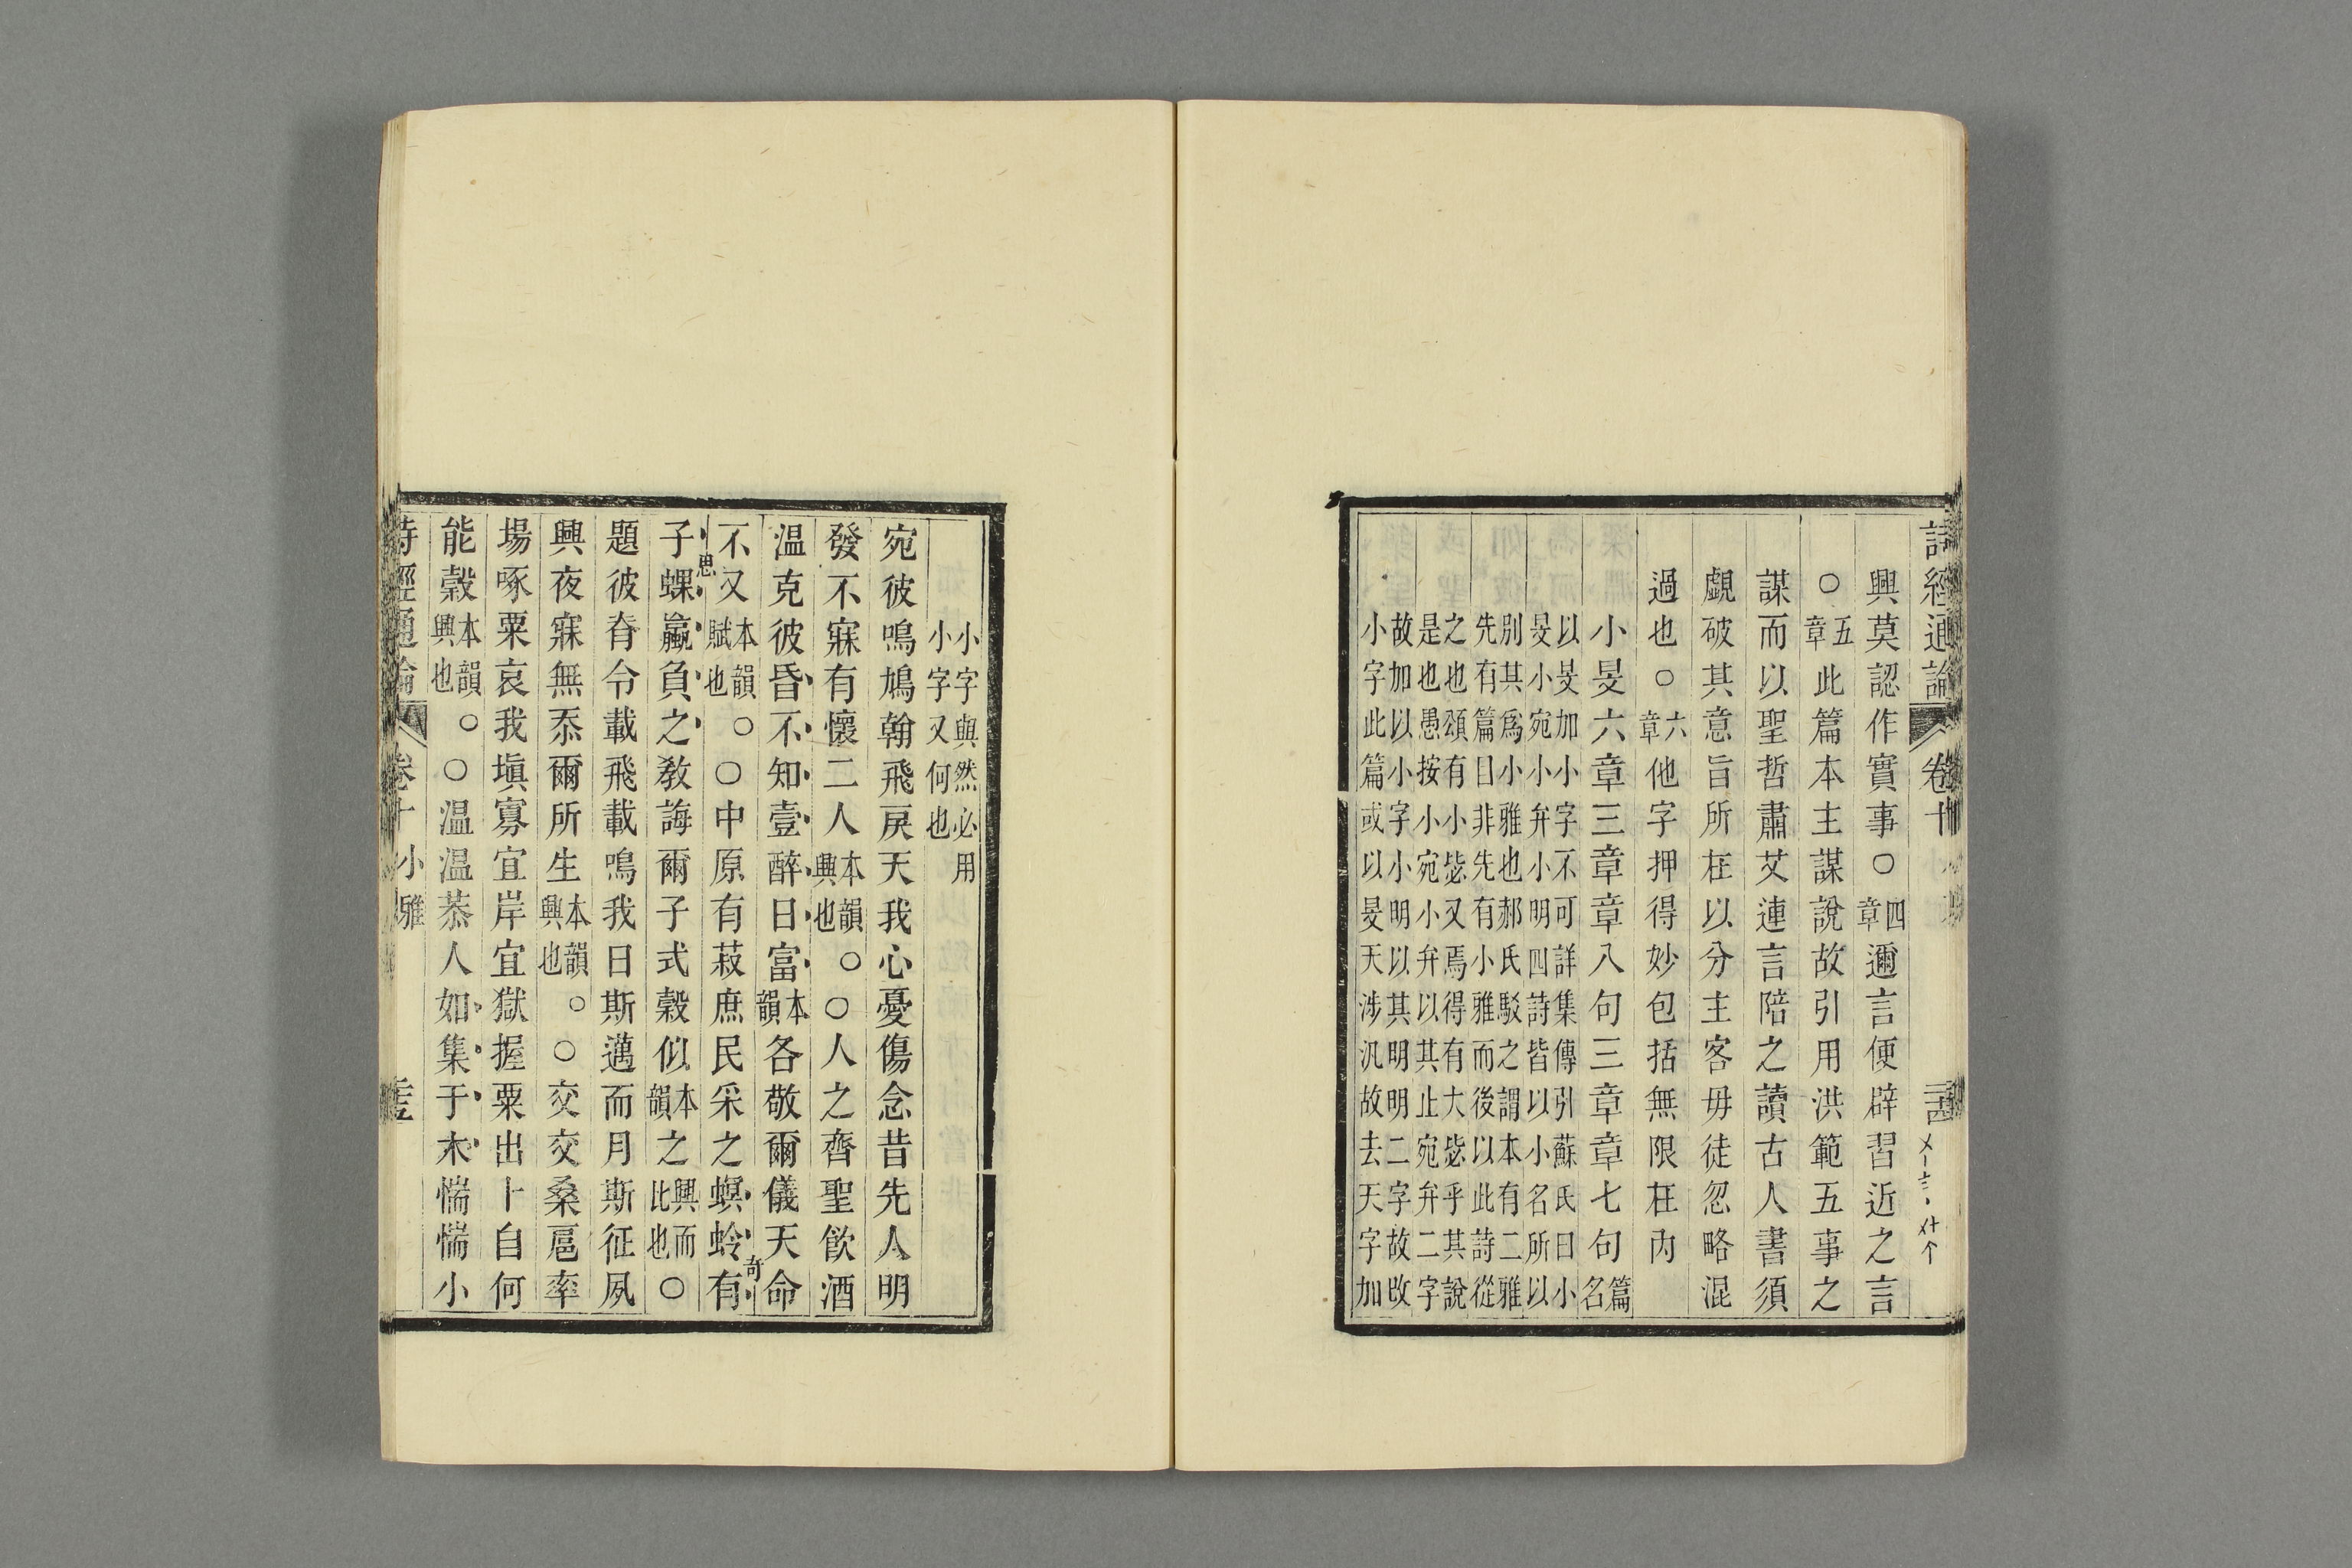 詩經通論 卷十 三四
興莫認作實事○四章邇言便辟習近之言
○五章此篇本主謀說故引用洪範五事之
謀而以聖哲肅艾連言陪之讀古人書須
覷破其意旨所在以分主客毋徒忽略混
過也○六章他字押得妙包括無限在內
小旻六章三章章八句三章章七句篇名
以旻加小字不可詳集傳引蘇氏曰小
旻小宛小弁小明四詩皆以小名所以
別其爲小雅也郝氏駁之謂本有二雅
先有篇曰非先有小雅而後以此詩從
之也頌有小毖又焉得有大毖乎其說
是也愚按小宛小弁以其止宛弁二字
故加以小字小明以其明明二字故改
小字此篇或以旻天涉汎故去天字加
小字與然必用
小字又何也
宛彼鳴鳩翰飛戾天我心憂傷念昔先人明
發不寐有懷二人本韻興也○○人之齊聖飲酒
温克彼昏不知壹醉日富本韻各敬爾儀天命
不又本韻賦也○○中原有菽庶民采之螟蛉有奇
子蜾蠃負之思教誨爾子式穀似本韻之興而比也○
題彼脊令載飛載鳴我日斯邁而月斯征夙
興夜寐無忝爾所生本韻興也○○交交桑扈率
場啄粟哀我塡寡宜岸宜獄握粟出卜自何
能穀本韻興也○○温温恭人如集于木惴惴小
詩經通論 卷十 小雅 三五